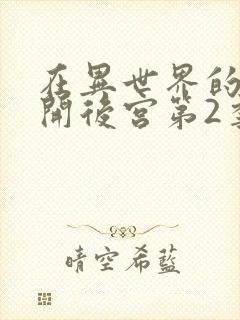 在異世界的
開後宮第2季
晴空希藍